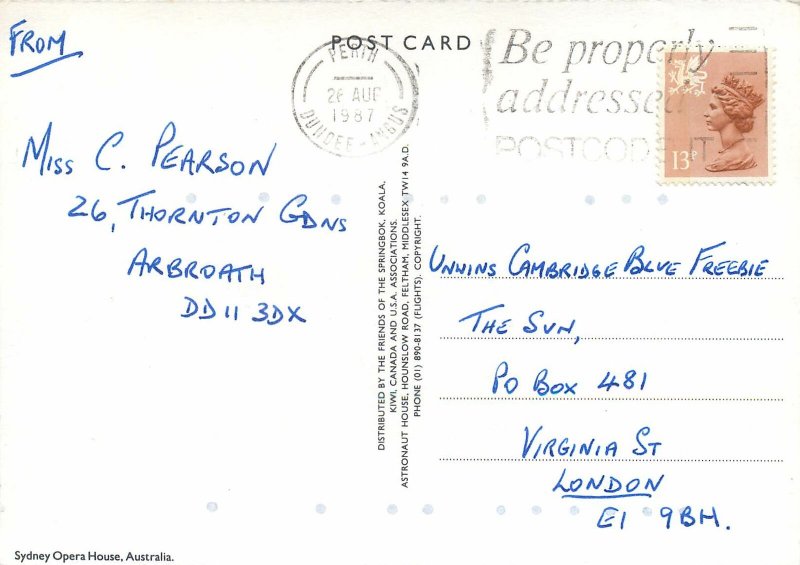 FROM
MISS C. PEARSON
26, THORNTON GDNS
ARBROATH
DD11 3DX
POST CARD
PERTH
28 AUG
1987
DUNDEE - ANGUS
Be properly
addressed
POSTCODE IT
13P
DISTRIBUTED BY THE FRIENDS OF THE SPRINGBOK, KOALA,
KIWI, CANADA AND U.S.A. ASSOCIATIONS.
ASTRONAUT HOUSE, HOUNSLOW ROAD, FELTHAM, MIDDLESEX TW14 9A.D.
PHONE (01) 890-8137 (FLIGHTS). COPYRIGHT.
UNWINS CAMBRIDGE BLUE FREEBIE
THE SUN,
PO BOX 481
VIRGINIA ST
LONDON
E1 9BH.
Sydney Opera House, Australia.